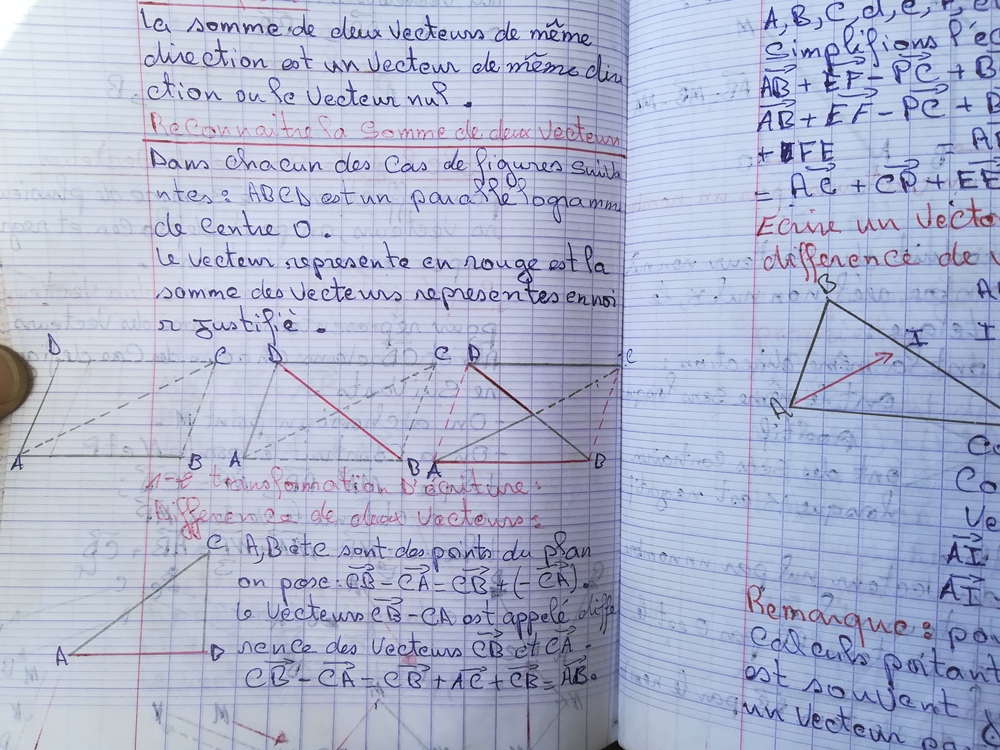 La somme de deux vecteurs de même
direction est un vecteur de même dir
ction ou le vecteur nul.
Reconnaitre la somme de deux vecteurs
Dans chacun des cas de figures suiva
ntes: ABCD est un parallélogramm
de centre O.
Le vecteur represente en rouge est la
somme des vecteurs representes en noi
r justifiè.
D C D C D C
A B A B A B
transformation D'écriture:
Difference de deux vecteurs:
C A, B et C sont des points du plan
on pose: CB - CA = CB + (-CA).
le vecteurs CB - CA est appelé diffe
A B rence des vecteurs CB et CA.
CB - CA = CB + AC + CB = AB.
A, B, C, d, e, F, e
Simplifions l'éc
AB + EF - PC + B
AB + EF - PC + B
+ FE = A
= AC + CP + EE
Ecrire un vect
différence de v
B A
I I
A
Co
Co
Ve
AI
AI
Remarque: pou
Calculs portant
est souvent
un vecteur